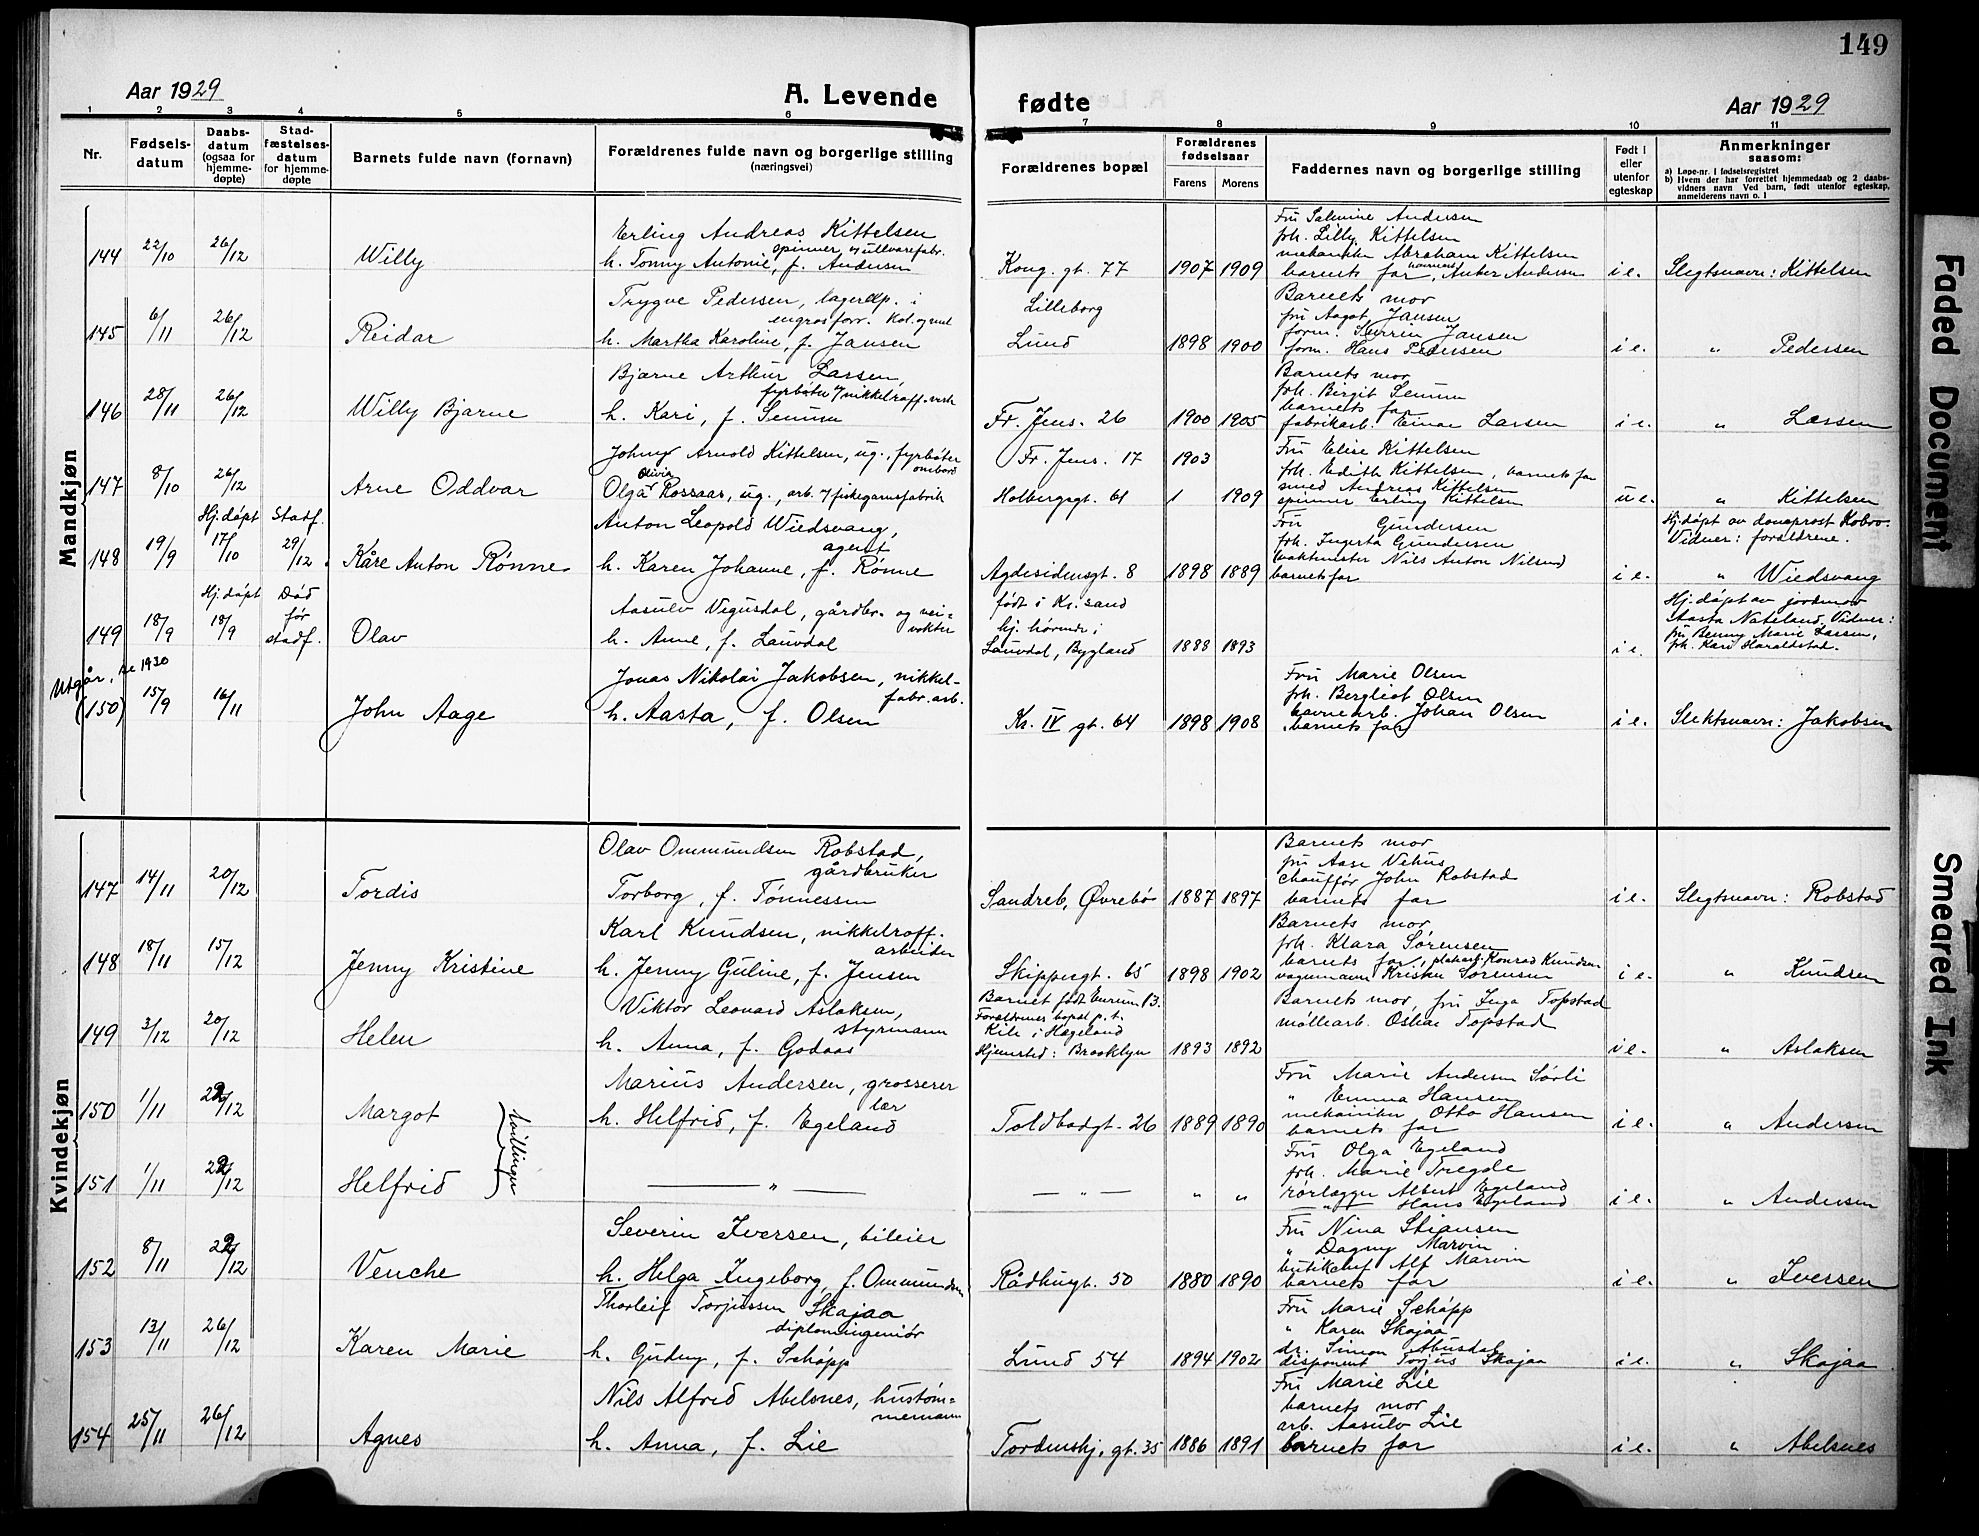 149
Aar 1929
A. Levende fødte
Aar 1929
1 2 3 4 5 6 7 8 9 10 11
Nr.
Fødsels-
datum
Daabs-
datum
(ogsaa for
hjemme-
døpte)
Stad-
fæstelses-
datum
for hjemme-
døpte
Barnets fulde navn (fornavn)
Forældrenes fulde navn og borgerlige stilling
(næringsvei)
Forældrenes bopæl
Forældrenes
fødselsaar
Farens Morens
Faddernes navn og borgerlige stilling
Født i
eller
utenfor
egteskap
Anmerkninger
saasom:
a) Løpe-nr. i fødselsregistret
b) Hvem der har forrettet hjemmedaab og 2 daabs-
vidners navn Ved barn, født utenfor egteskap,
anmelderens navn o. l
Mandkjøn
144 22/10 26/12 Willy
Erling Andreas Kittelsen
spinner v/ ullvarefabr.
h. Tonny Antonie, f. Andersen
Kong. gt. 77 1907 1909
Fru Salmine Andersen
frk. Lilly Kittelsen
mekaniker Abraham Kittelsen
barnets far, Anker Andersen
i e. Slegtsnavn: Kittelsen
145 6/11 26/12 Reidar
Trygve Pedersen, lagereksp. i
engrosforr. Kol. og mel
h. Martha Karoline, f. Jansen
Lilleborg
Lund 1898 1900
Barnets mor
fru Aagot Jansen
form. Jansen
form. Hans Pedersen
i e. " Pedersen
146 28/11 26/12 Willy Bjarne
Bjarne Arthur Larsen,
fyrbøter v/ nikkelraff. verk
h. Kari, f. Senum
Fr. Jens. 26 1900 1905
Barnets mor
frk. Birgit Senum
barnets far
fabrikarb. Einar Larsen
i e. " Larsen
147 8/10 26/12 Arne Oddvar
Johny Arnold Kittelsen, ug., fyrbøter
ombord
Olga Olivia Rossaas, ug., arb. v/ fiskegarnsfabrik
Fr. Jens. 17 1903
Holbergsgt. 61 1 1909
Fru Elise Kittelsen
frk. Edith Kittelsen, barnets far
smed Andreas Kittelsen
spinner Erling Kittelsen
u e. " Kittelsen
Hj. døpt Stadf.
148 19/9 17/10 29/12. Kåre Anton Rønne
Anton Leopold Wiedsvang,
agent
h. Karen Johanne, f. Rønne
Agdesidensgt. 8 1898 1889
Fru Gundersen
frk. Ingerta Gundersen
vaktmester Nils Anton Nilsen
barnets far
Hj. døpt av domprost Kobro.
Vidner: foreldrene.
i e. " Wiedsvang
Hj. døpt Død
før
stadf.
149 18/9 18/9 Olav
Aasulv Vegusdal, gårdbr. og vei-
vokter
h. Anne, f. Lauvdal
født i Kr.sand
hj. hørende i
Lauvdal, Bygland 1888 1893
i e.
Hj. døpt av jordmor
Aasta Nateland, Vidner:
fru Benny Marie Larsen,
frk. Kari Haraldstad.
Utgår, se 1930
(150) 15/9 16/11 John Aage
Jonas Nikolai Jakobsen, nikkel-
fabr. arb.
h. Aasta, f. Olsen
Kr. IV gt. 64 1898 1908
Fru Marie Olsen
frk. Bergliot Olsen
havnearb. Johan Olsen
barnets far
i e. Slektsnavn: Jakobsen
Kvindekjøn
147 14/11 20/12 Tordis
Olav Ommundsen Robstad,
gårdbruker
Torborg, f. Tønnessen
Sandreb, Øvrebø 1887 1897
Barnets mor
fru Aase Vehus
chauffør John Robstad
barnets far
i e. Slegtsnavn: Robstad
148 18/11 15/12 Jenny Kristine
Karl Knudsen, nikkelraff.
arbeider
h. Jenny Guline, f. Jensen
Skippergt. 65 1898 1902
Barnets mor
frk. Klara Sørensen
barnets far, Konrad Knudsen
vognmann Kristen Sørensen
i e. " Knudsen
149 3/12 20/12 Helen
Viktor Leonard Aslaksen,
styrmann
h. Anna, f. Godaas
Barnet født
Foreldrenes bopel p. t.
Kile i Hægeland
Hjemsted: Brooklyn 1893 1892
Barnets mor, fru Inga Topstad
møllearb. Oskar Topstad
i e. " Aslaksen
150 1/11 22/12 Margot
tvillinger
Marius Andersen, grosserer
lær
h. Helfrid, f. Egeland
Toldbodgt. 26 1889 1890
Fru Marie Andersen Sørli
" Emma Hansen
mekaniker Otto Hansen
barnets far
i e. " Andersen
151 1/11 22/12 Helfrid
— " —
— " — " "
Fru Olga Egeland
frk. Marie Tregde
rørlægger Albert Egeland
— " — Hans Egeland
i e. " Andersen
152 8/11 22/12 Venche
Severin Iversen, bileier
h. Helga Ingeborg, f. Ommundsen
Rådhusgt. 50 1880 1890
Fru Nina Stiansen
" Dagny Marvin
butikchef Alf Marvin
barnets far
i e. " Iversen
153 13/11 26/12 Karen Marie
Thorleif Torjussen Skajaa
diplomingeniør
h. Gudny, f. Schøpp
Lund 54 1894 1902
Fru Marie Schøpp
" Karen Skajaa
dr. Simon Abusdal
disponent Torjus Skajaa
i e. " Skajaa
154 25/11 26/12 Agnes
Nils Alfrid Abelsnes, hustøm-
mermann
h. Anna, f. Lie
Tordenskj. gt. 35 1886 1891
Fru Marie Lie
barnets mor
arb. Aasulv Lie
barnets far
i e. " Abelsnes
Faded Document
Smeared Ink